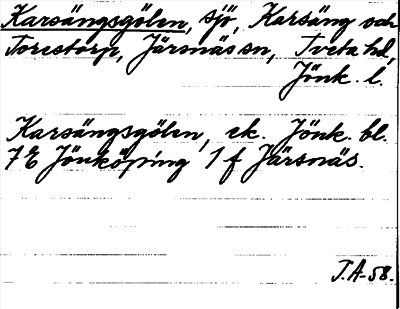 Karsängsgölen, sjö, Karsäng och
Torestorp, Järsnäs sn, Tveta hd,
Jönk. l.
Karsängsgölen, ek. Jönk. bl.
7E Jönköping 1 f Järsnäs.
J.A-58.